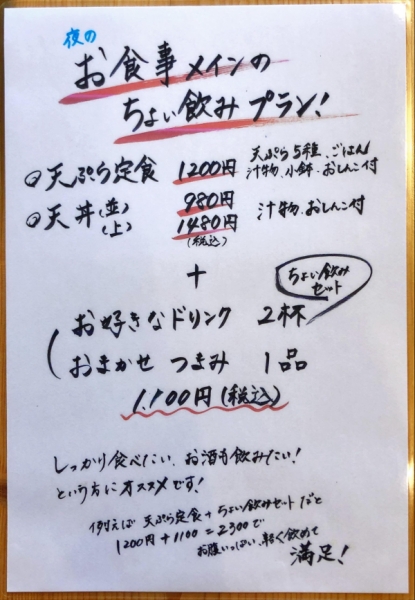 夜の
お食事メインの
ちょい飲みプラン!
◎天ぷら定食 1200円 天ぷら5種、ごはん
汁物、小鉢、おしんこ付
◎天丼(並) 980円 汁物、おしんこ付
(上) 1480円
(税込)
+
ちょい飲み
セット
お好きなドリンク 2杯
おまかせ つまみ 1品
1,100円(税込)
しっかり食べたい、お酒も飲みたい!
という方にオススメです!
例えば 天ぷら定食+ちょい飲みセットだと
1200円+1100=2300で
お腹いっぱい、軽く飲めて
満足!